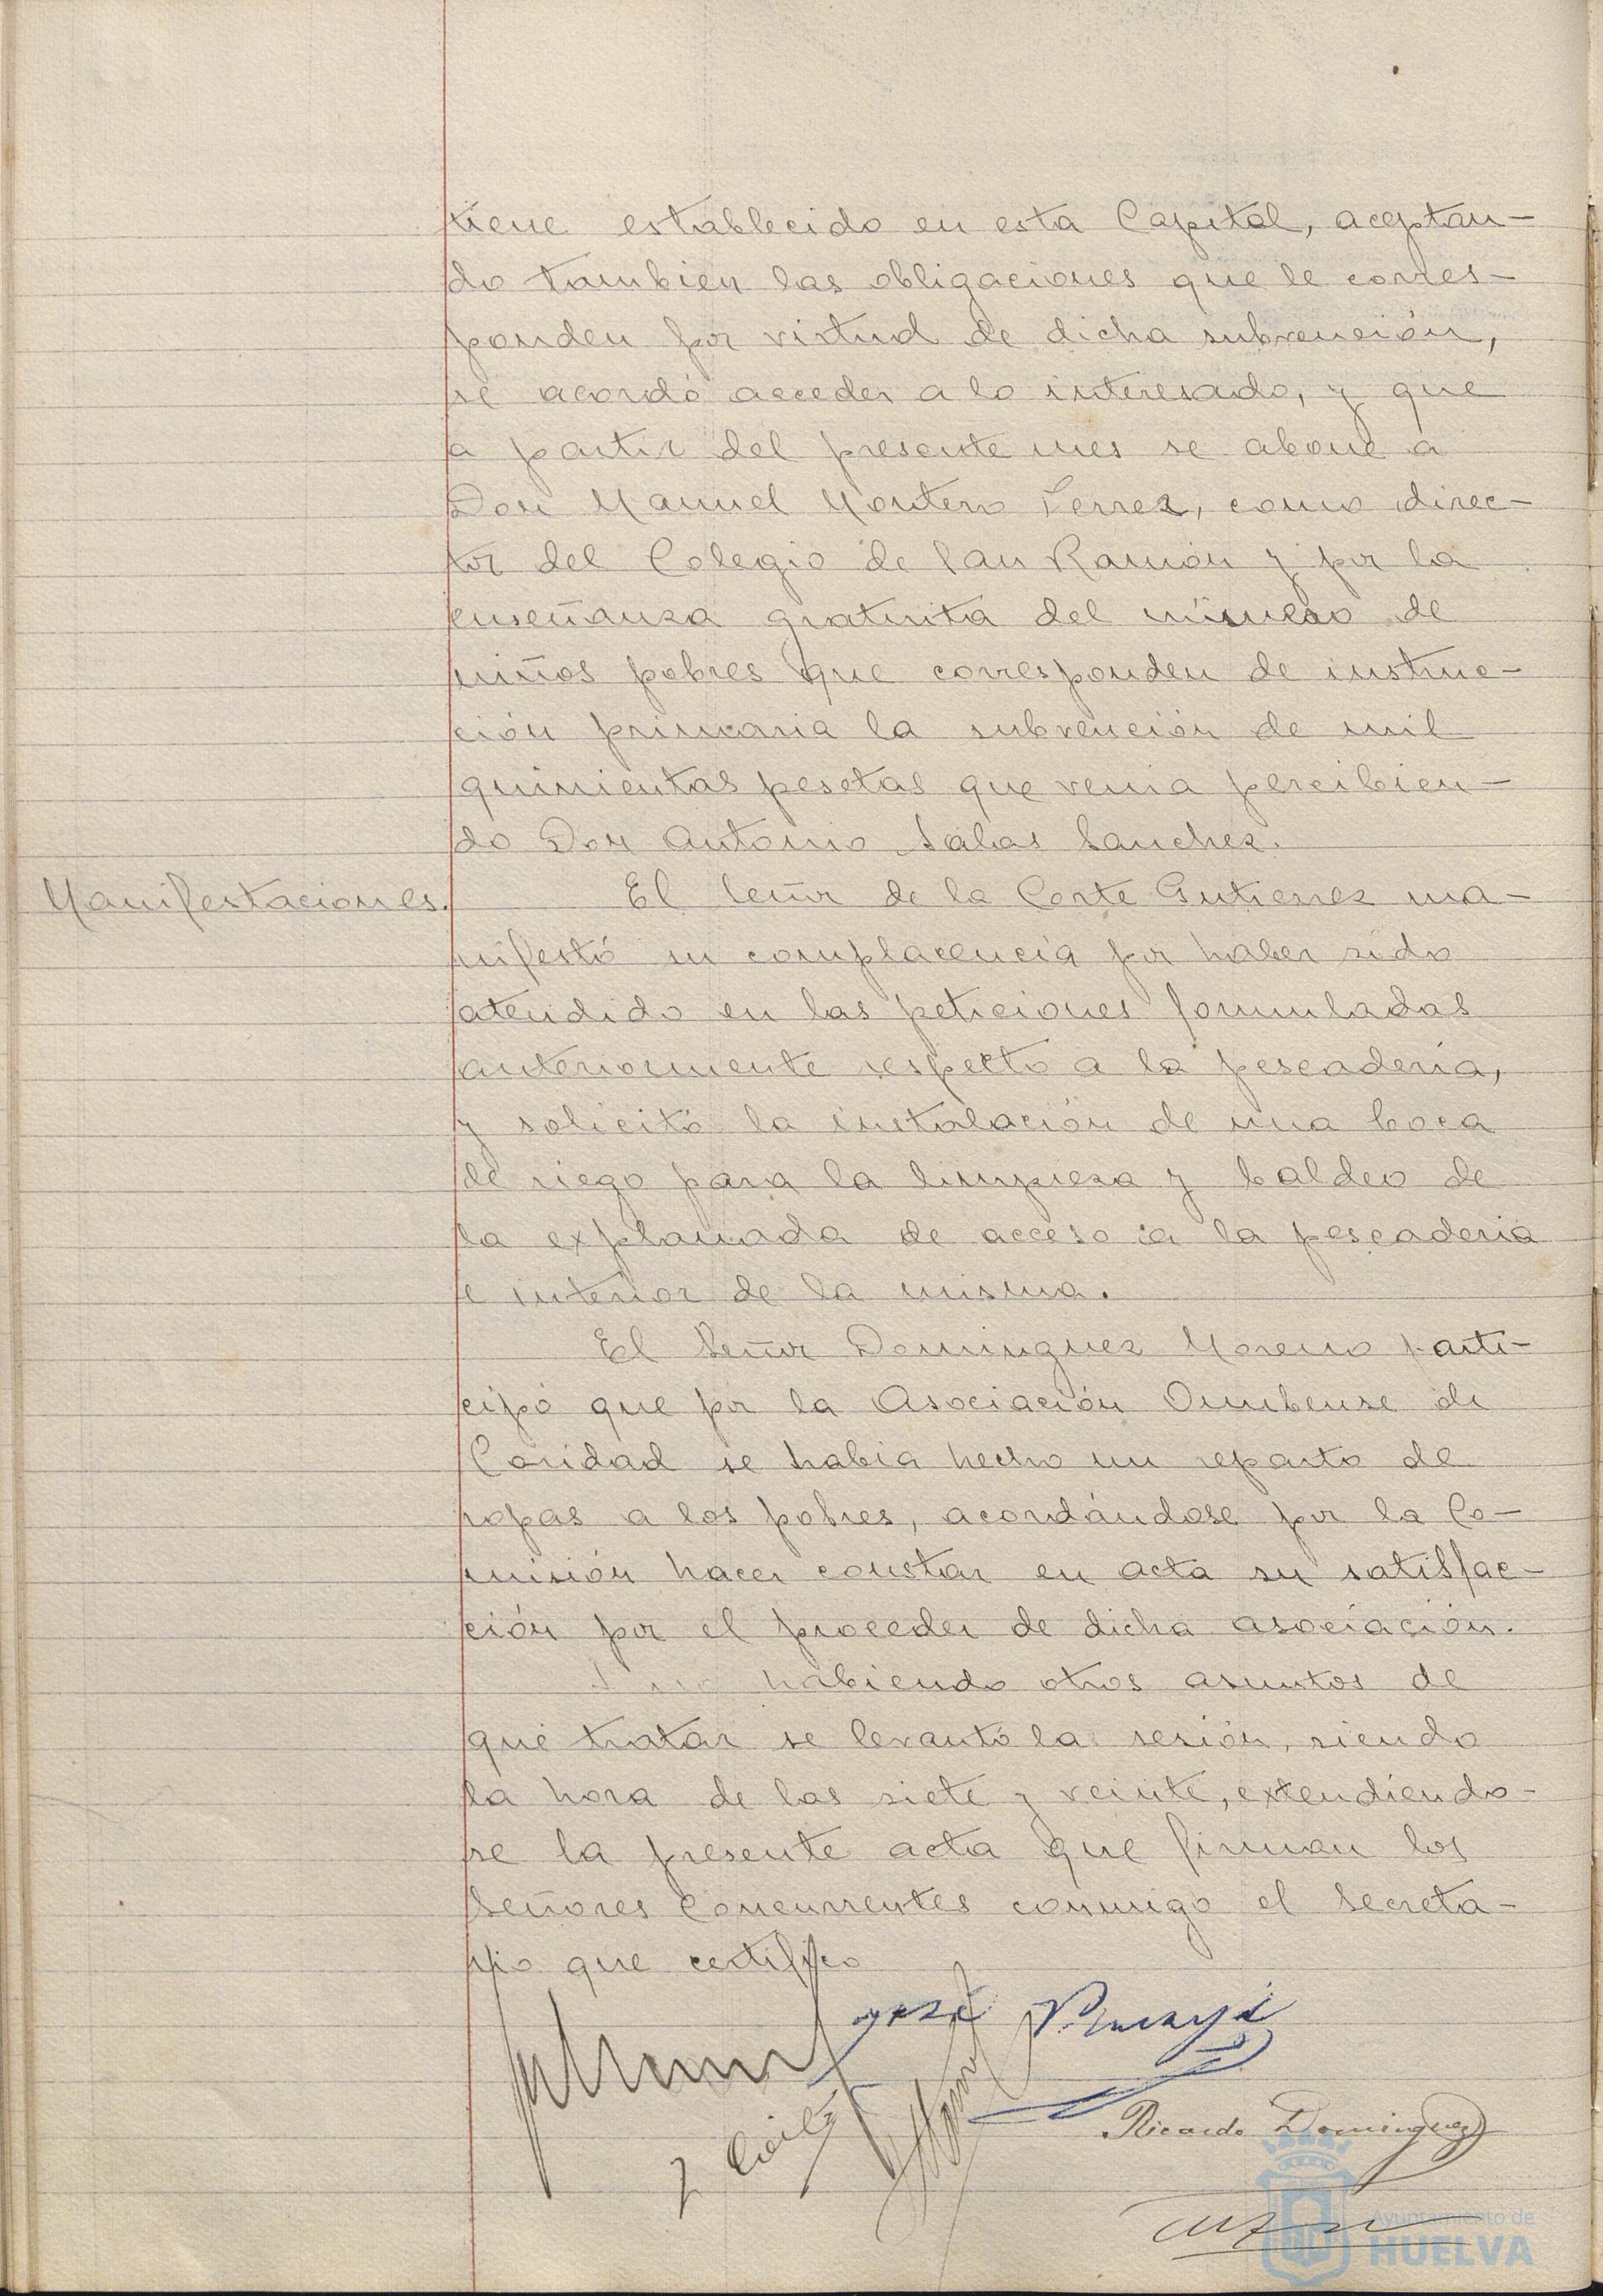 tiene establecido en esta Capital, aceptan-
do tambien las obligaciones que le corres-
ponden por virtud de dicha subvención,
se acordó acceder a lo interesado, y que
a partir del presente mes se abone a
Don Manuel Montero Ferrez, como direc-
tor del Colegio de San Ramón y por la
enseñanza gratuita del número de
niños pobres que corresponden de instruc-
ción primaria la subvención de mil
quinientas pesetas que venia percibien-
do Don Antonio Salas Sanchez.
Manifestaciones.
El Señor de la Corte Gutierrez ma-
nifestó su complacencia por haber sido
atendido en las peticiones formuladas
anteriormente respecto a la pescadería,
y solicitó la instalación de una boca
de riego para la limpieza y baldeo de
la explanada de acceso a la pescaderia
e interior de la misma.
El Señor Dominguez Moreno parti-
cipó que por la Asociación Onubense de
Caridad se habia hecho un reparto de
ropas a los pobres, acordándose por la Co-
misión hacer constar en acta su satisfac-
ción por el proceder de dicha asociación.
Y no habiendo otros asuntos de
que tratar se levantó la sesión, siendo
la hora de las siete y veinte, extendiendo-
se la presente acta que firman los
Señores Concurrentes conmigo el Secreta-
rio que certifico
José
Ricardo Dominguez
Ayuntamiento de
HUELVA